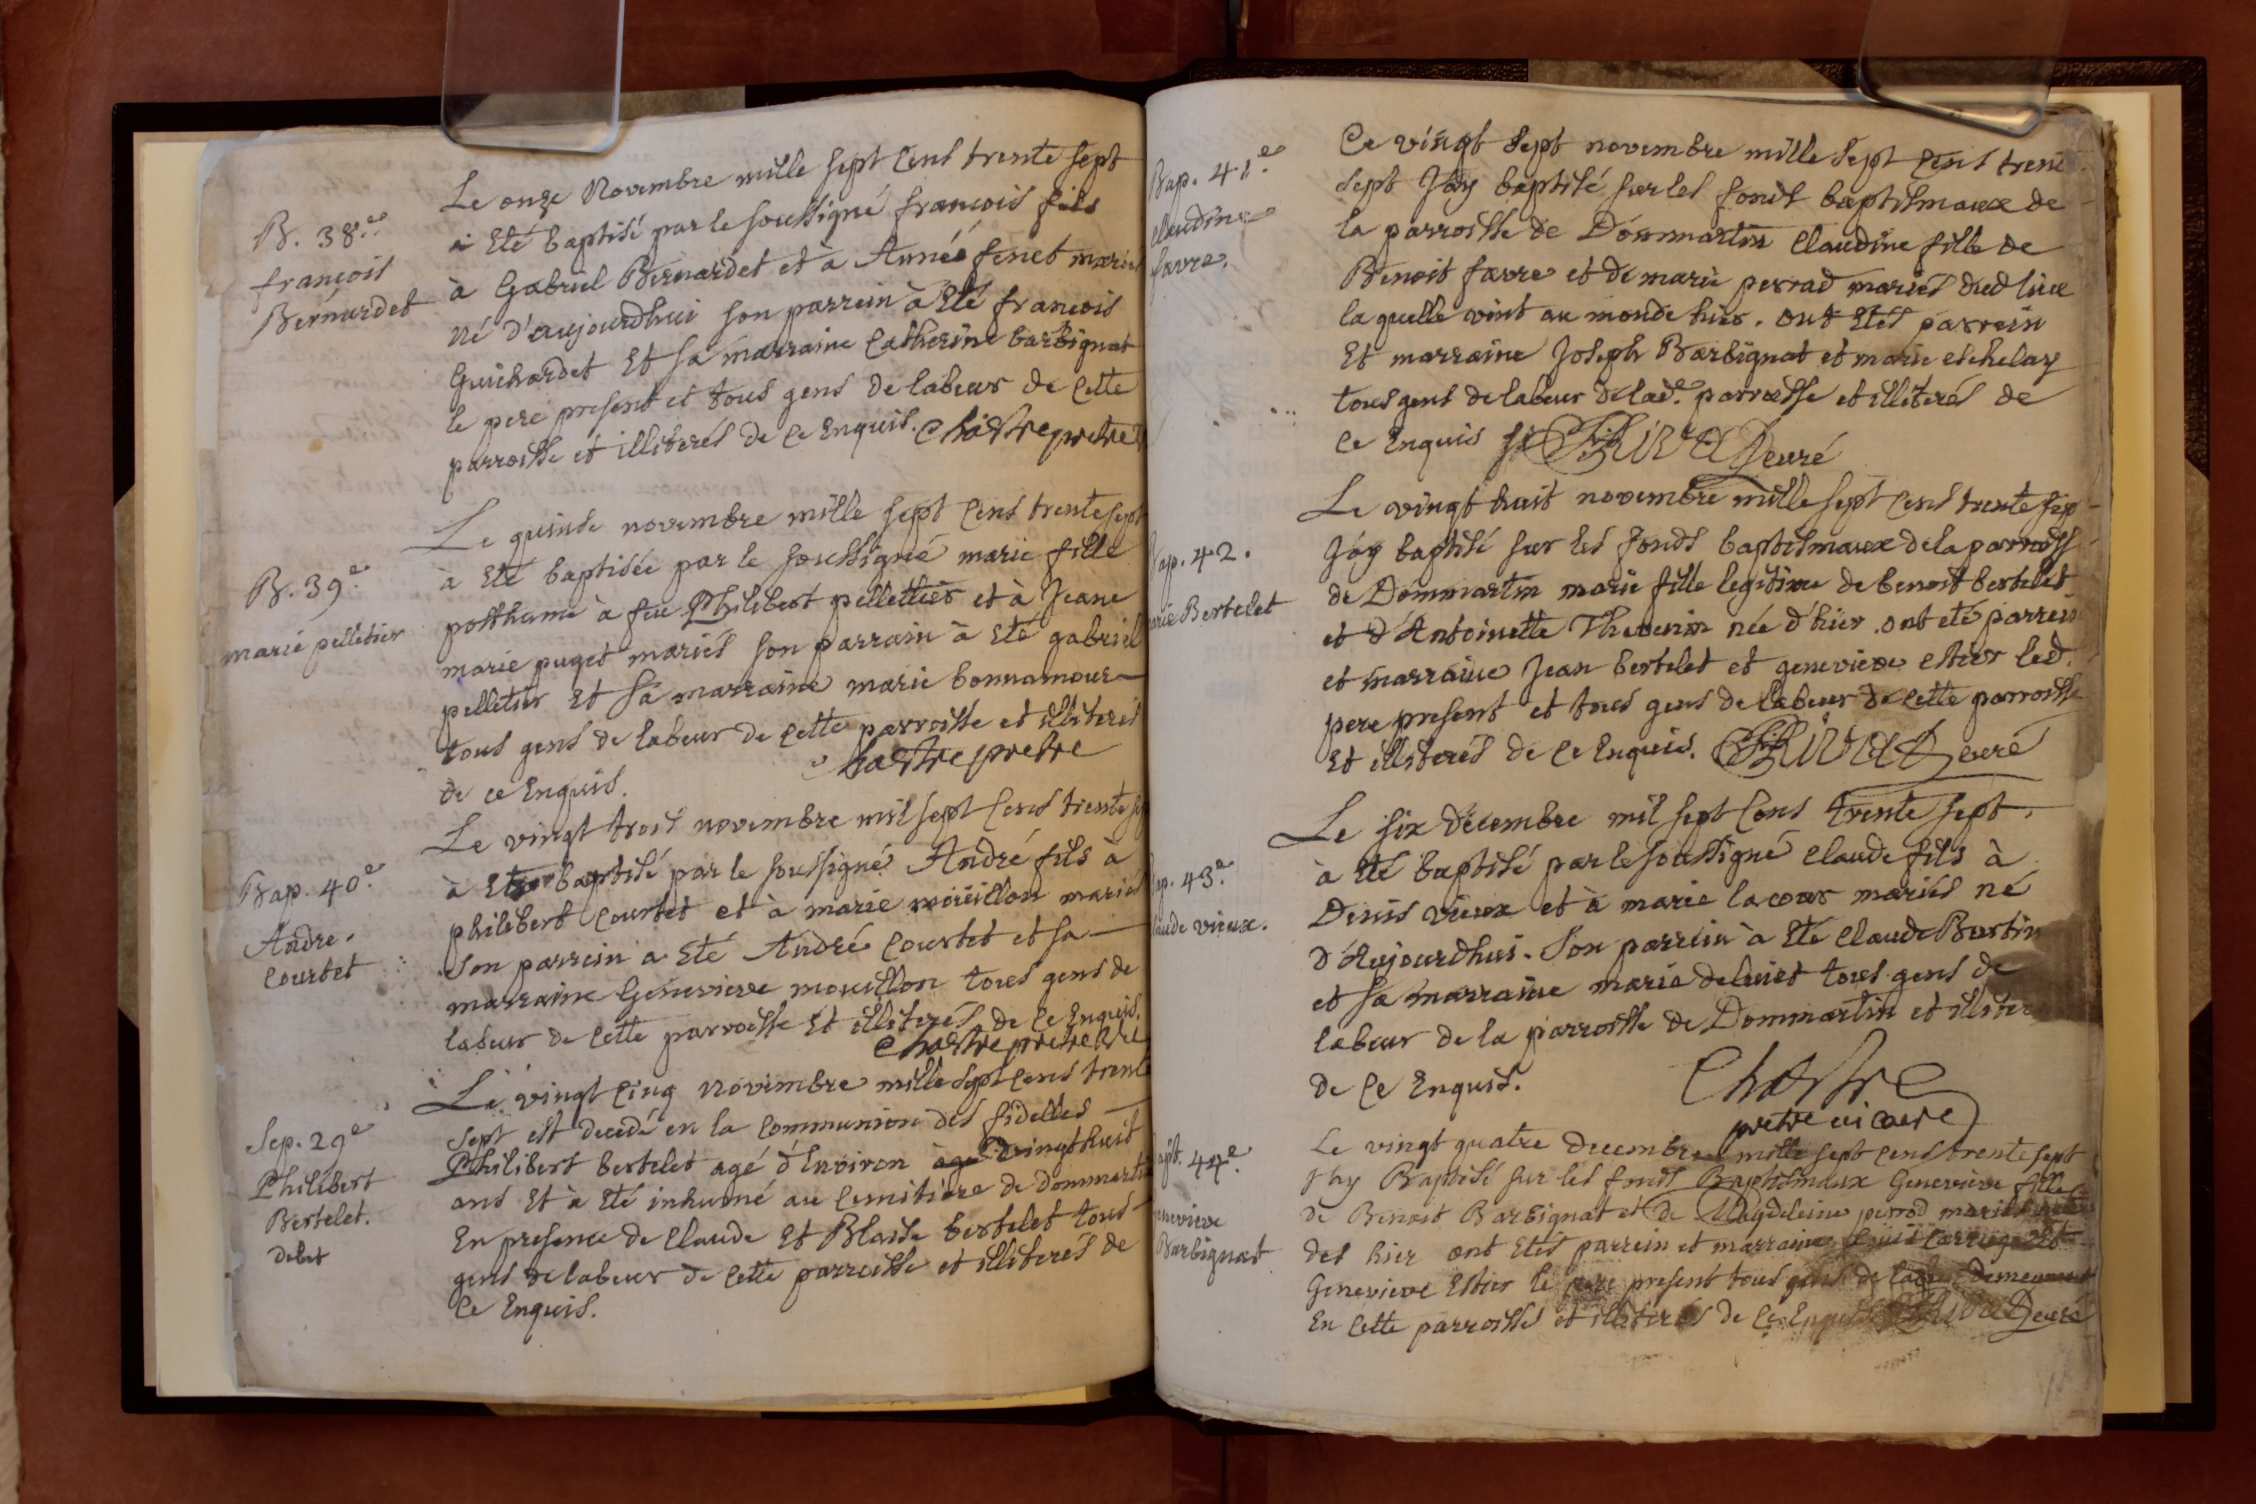 B. 38.e
françois
Bernardet
Le onze Novembre mille sept Cens trente sept
a Eté baptisé par le soussigné françois fils
à Gabriel Bernardet et à Année fenet mariés
né d'aujourdhui son parrein à Eté francois
Guichardet Et sa marraine Catherine barbignat
le pere present et tous gens de labeur de Cette
parroisse et illiterés de Ce Enquis. Chastre pretre
B. 39.e
marie pelletier
Le quinse novembre mille sept Cens trente sept
à Eté baptisée par le soussigné marie fille
posthume à feu Philibert pelletier et à Jeane
marie puget mariés son parrain à Eté gabriel
pelletier Et sa marraine marie bonnamour
tous gens de labeur de Cette parroisse et illiterés
de ce Enquis. Chastre pretre
Bap. 40.e
Andre.
Courtet
Le vingt trois novembre mil sept Cens trente sep
à Eté baptisé par le soussigné André fils à
philibert Courtet et à marie moüillon mariés
Son parrein a Eté André Courtet et sa
marraine Genevieve mouillon tous gens de
labeur de Cette parroisse Et illiterés de Ce Enquis.
Chastre pretre
Sep. 29.e
Philibert
Bertelet.
debet
Le vingt Cinq novembre mille sept Cens trente
sept est decedé en la Communion des fidelles
Philibert bertelet agé d'Environ vingt huit
ans Et à Eté inhumé au Cemitiere de dommartin
En presence de Claude Et Blaise bertelet tous
gens de labeur de Cette parroisse et illiterés de
Ce Enquis.
Bap. 41.e
Claudine
favre.
Ce vingt sept novembre mille sept Cens trent
sept J'ay baptisé sur les fonds baptismaux de
la parroisse de Dommartin Claudine fille de
Benoit favre et de marie perrad mariés dud lieu
laquelle vint au monde hier. ont Etés parrein
Et marraine Joseph Barbignat et marie etchelay
tous gens de labeur de lad.e parroisse et illiterés de
Ce Enquis curé
ap. 42.
arie Bertelet
Le vingt huit novembre mille sept Cens trente sep
J'ay baptisé sur les fonds baptismaux de la parroiss
de Dommartin marie fille legitime de benoit bertelet
et d'Antoinette Thevenin née d'hier. ont eté parrein
et marraine Jean bertelet et genevieve Estier led.
pere present et tous gens de labeur de Cette parroisse
Et illiterés de Ce Enquis. curé
ap. 43.e
laude vieux.
Le six décembre mil sept Cens trente sept.
à Eté baptisé par le soussigné Claude fils à
Denis vieux et à marie lacour mariés né
d'Aujourdhui. Son parrein à Eté Claude Burtin
et sa marraine marie deliviet tous gens de
labeur de la parroisse de Dommartin et illiter
de Ce Enquis. Chastre
pretre vicaire
apt. 44.e
enevieve
Barbignat
Le vingt quatre Decembre mille sept cens trente sept
J'hy Baptisé sur les fonds Baptismaux Genevieve fille
de Benoit Barbignat et de Magdeleine perrod mariés
des hier ont Etés parrein et marraine Louis
Genevieve Estier le pere present tous gens de labeur demeurant
En Cette parroisse et illiterés de Ce Enquis curé